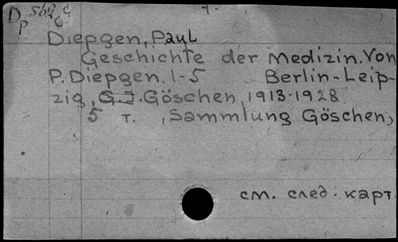 D 569 c
p 6
Diepgen, Paul
Geschichte der Medizin. Von
P. Diepgen. 1-5 Berlin-Leip-
zig, G. J. Göschen, 1913-1928
5 т. , Sammlung Göschen,
см. след. карт.